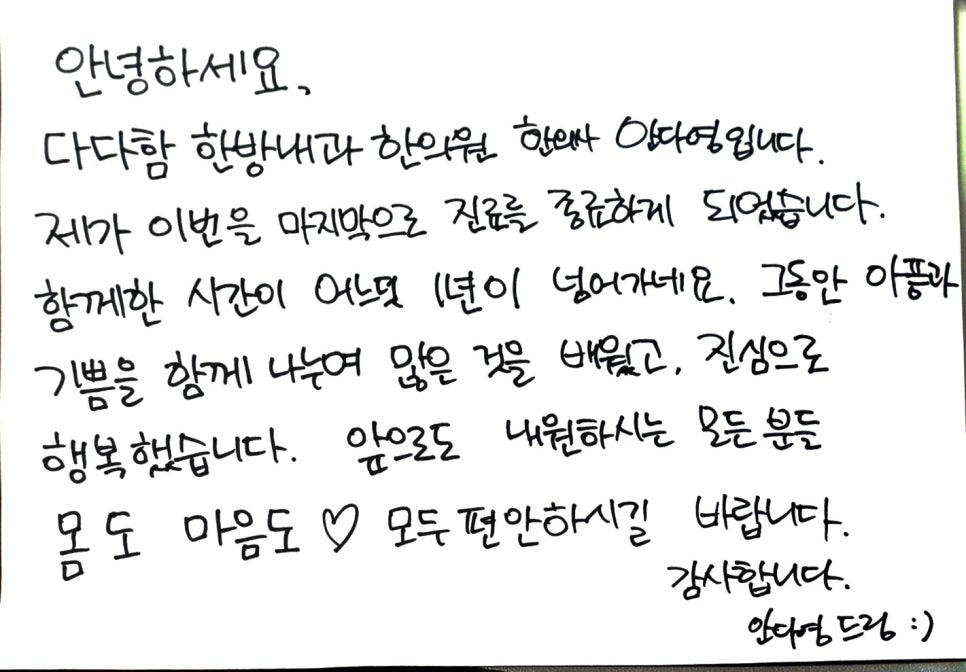 안녕하세요,
다다함 한방내과 한의원 한의사 안다영입니다.
제가 이번을 마지막으로 진료를 종료하게 되었습니다.
함께한 시간이 어느덧 1년이 넘어가네요. 그동안 아픔과
기쁨을 함께 나누며 많은 것을 배웠고, 진심으로
행복했습니다. 앞으로도 내원하시는 모든 분들
몸도 마음도 ♡ 모두 편안하시길 바랍니다.
감사합니다.
안다영 드림 :)